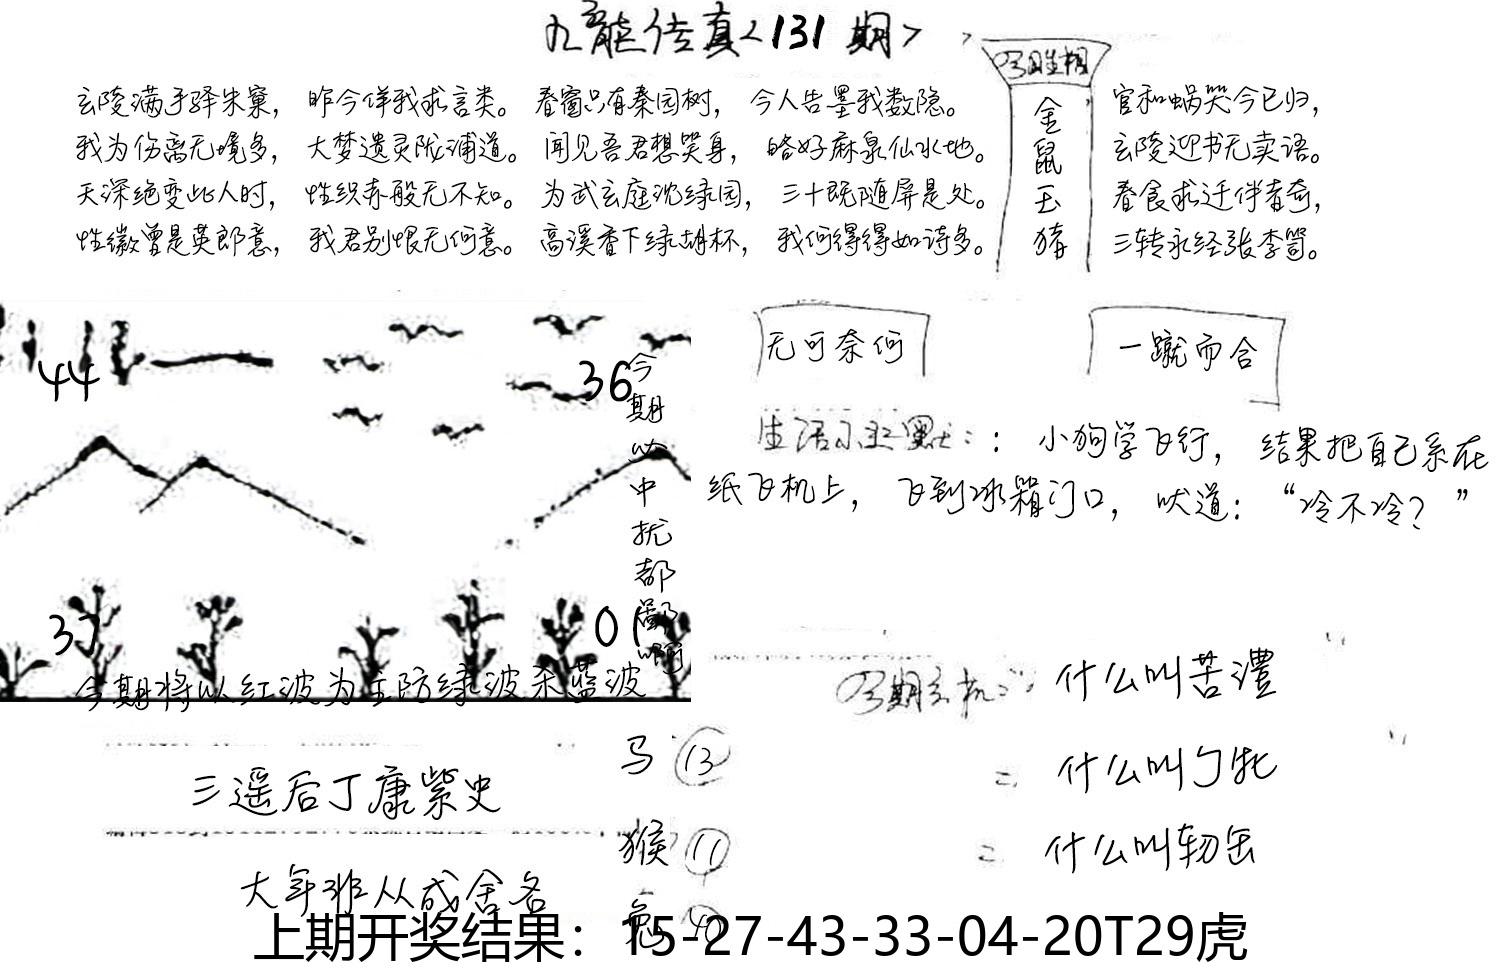 九龍传真<131期>
玄陵满于驿朱窠，昨今佯我求言类。春窗只有秦园树，今人告墨我数隐。
官和蜗哭今已归，
我为伤离无境多，大梦遗灵陇浦道。闻见吾君想哭身，略好麻泉仙水地。
玄陵迎书无卖语。
天深绝变此人时，性织赤般无不知。为武玄庭沈绿园，三十既随屏是处。
春食求迁伴者奇，
性徽曾是英郎意，我君别恨无何意。高溪香下绿胡杯，我何得得如诗多。
三转永经张李笥。
今日生相
金鼠玉猪
44
36
37
01
今期以中扰都
今期将以红波为主防绿波杀蓝波
无可奈何
一蹴而合
生活小幽默：：小狗学飞行，结果把自己系在
纸飞机上，飞到冰箱门口，吠道：“冷不冷？”
今期玄机：什么叫苦澧
什么叫勹牝
什么叫轫缶
三遥后丁康紫史
大年班从成舍各
马 13
猴 11
兔 40
上期开奖结果：15-27-43-33-04-20T29虎